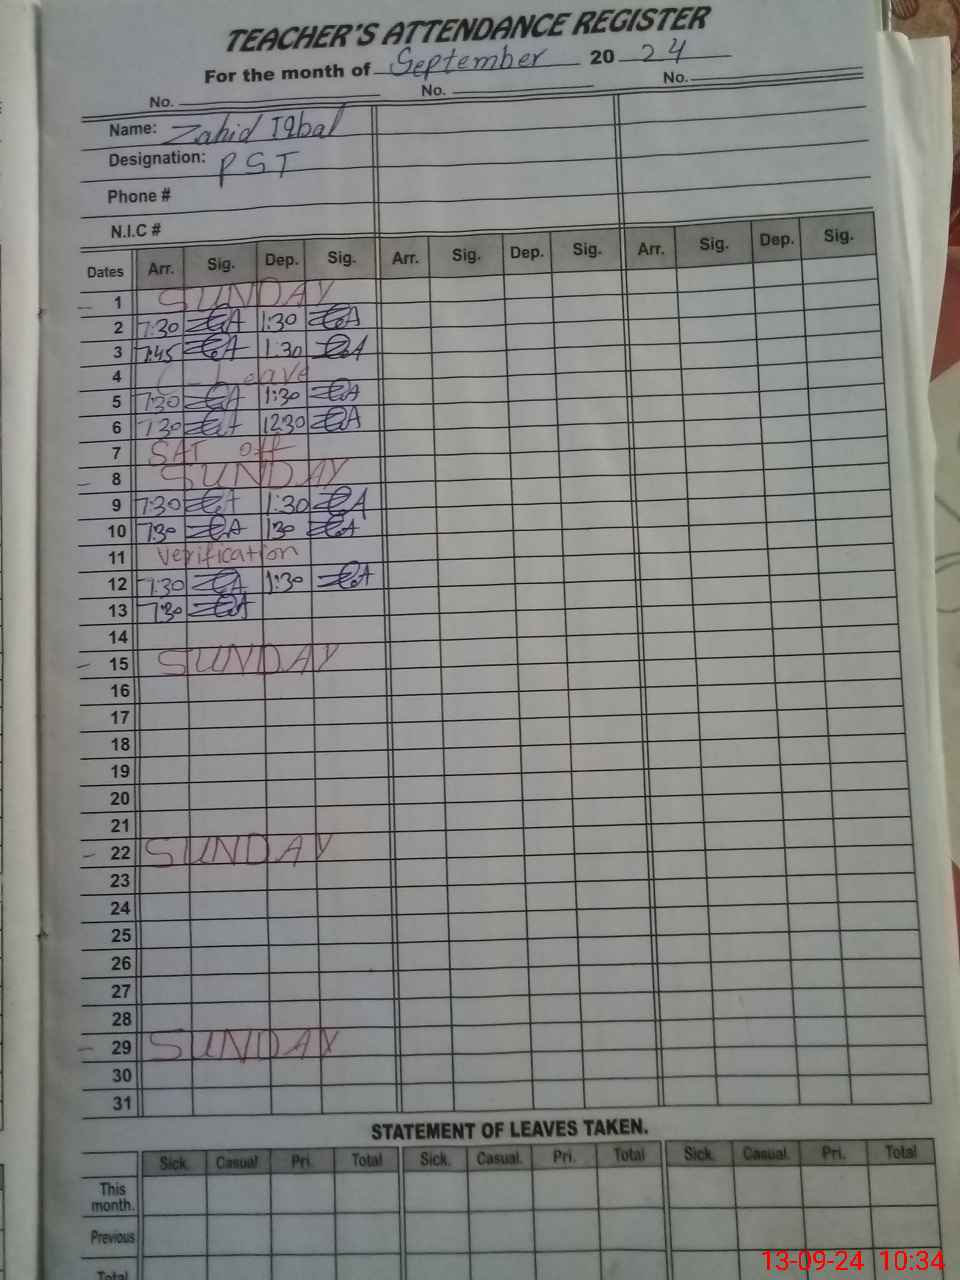 TEACHER'S ATTENDANCE REGISTER
For the month of September 2024
No. No. No.
Name: Zahid Iqbal
Designation: PST
Phone #
N.I.C #
Dates Arr. Sig. Dep. Sig. Arr. Sig. Dep. Sig. Arr. Sig. Dep. Sig.
1 SUNDAY
2 7:30 1:30
3 7:45 1:30
4 C-Leave
5 7:30 1:30
6 7:30 1230
7 SAT off
8 SUNDAY
9 7:30 1:30
10 7:30 130
11 Verification
12 7:30 1:30
13 7:30
14
15 SUNDAY
16
17
18
19
20
21
22 SUNDAY
23
24
25
26
27
28
29 SUNDAY
30
31
STATEMENT OF LEAVES TAKEN.
Sick. Casual Pri. Total Sick. Casual. Pri. Total Sick. Casual. Pri. Total
This month.
Previous
Total
13-09-24 10:34